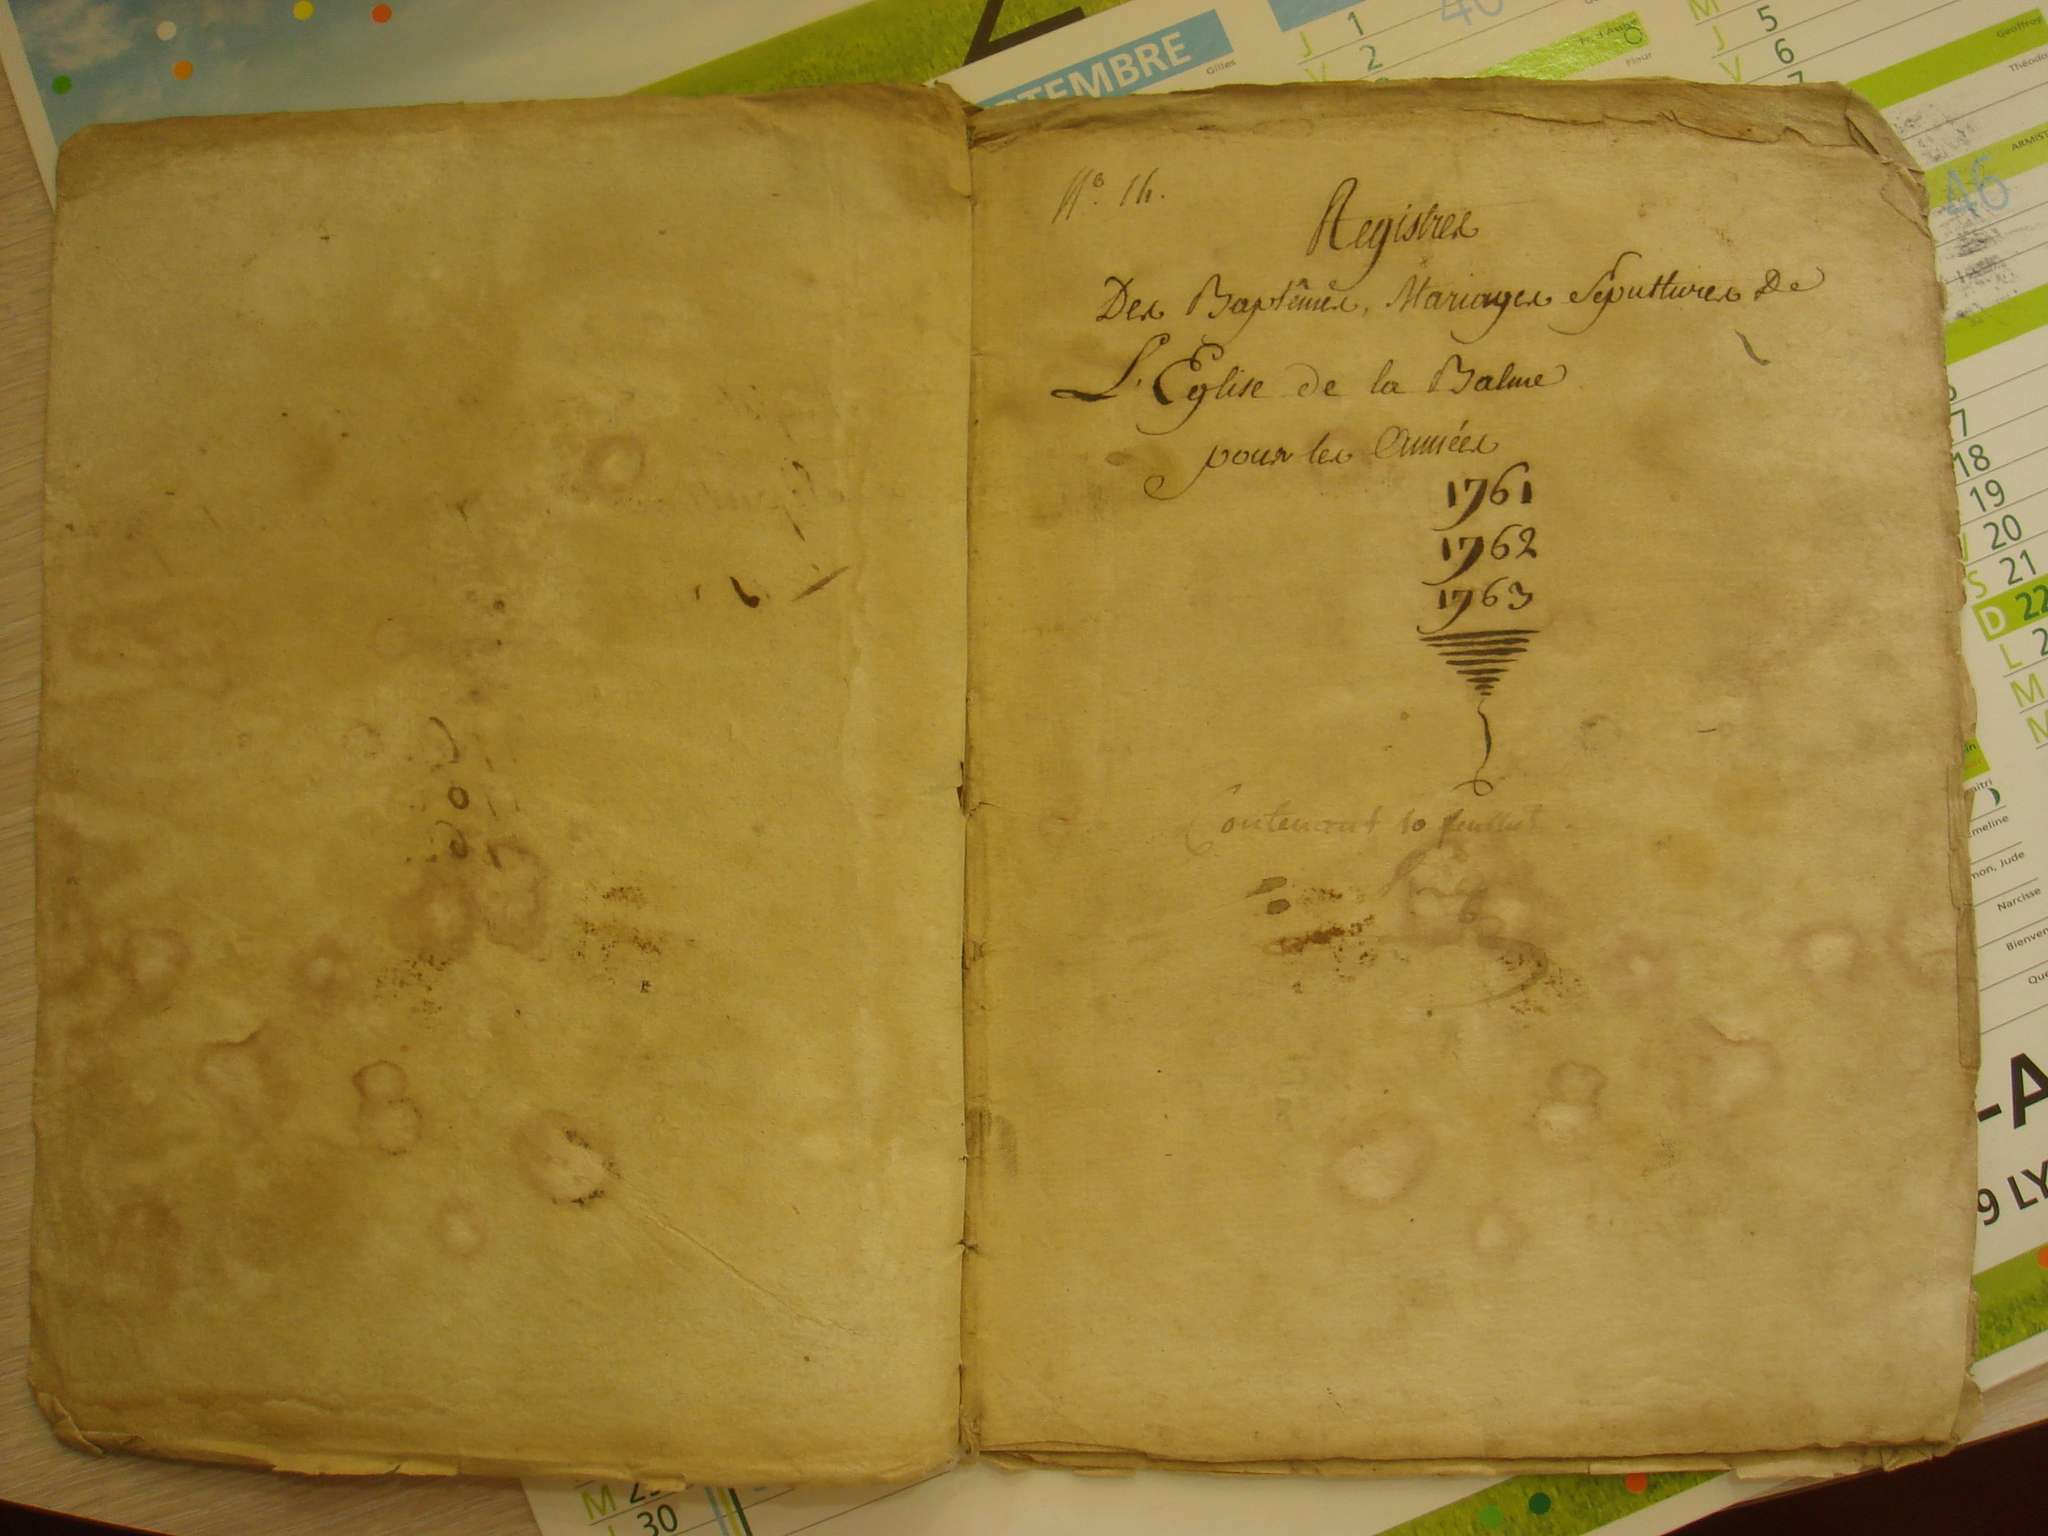 N° 14.
Registres
Des Baptêmes, Mariages Sépultures De
L'Eglise de la Balme
pour les Années
1761
1762
1763
Contenant 10 feuillet
TEMBRE
Gilles
J 1
V 2
5
J 6
V 7
Geoffroy
46
17
18
19
20
S 21
D 22
L 2
M
M
meline
mon, Jude
Narcisse
Bienven
-A
9 LY
M 29
30